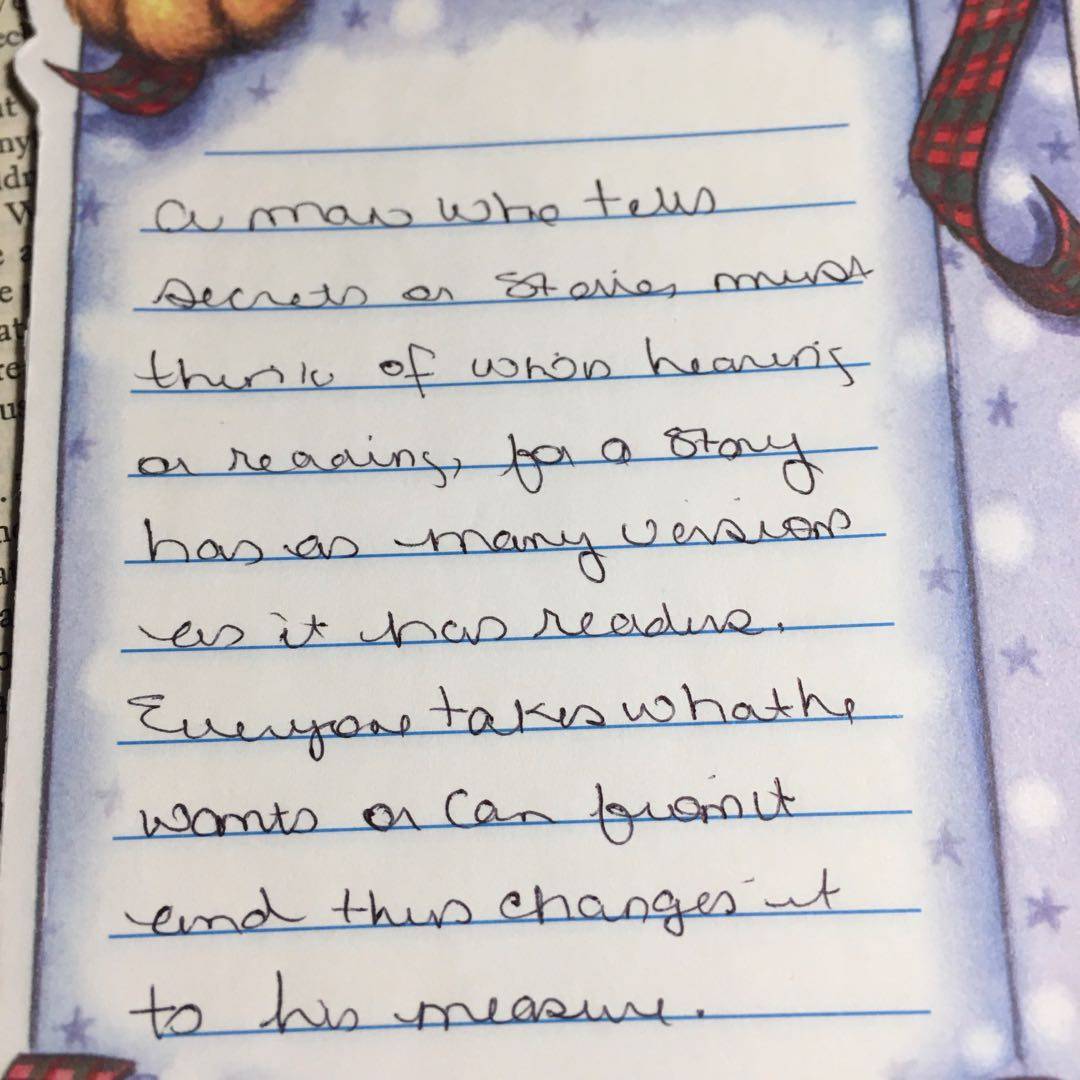 a man who tells
secrets or stories must
think of who is hearing
or reading, for a story
has as many versions
as it has readers.
Everyone takes what he
wants or can from it
and thus changes it
to his measure.